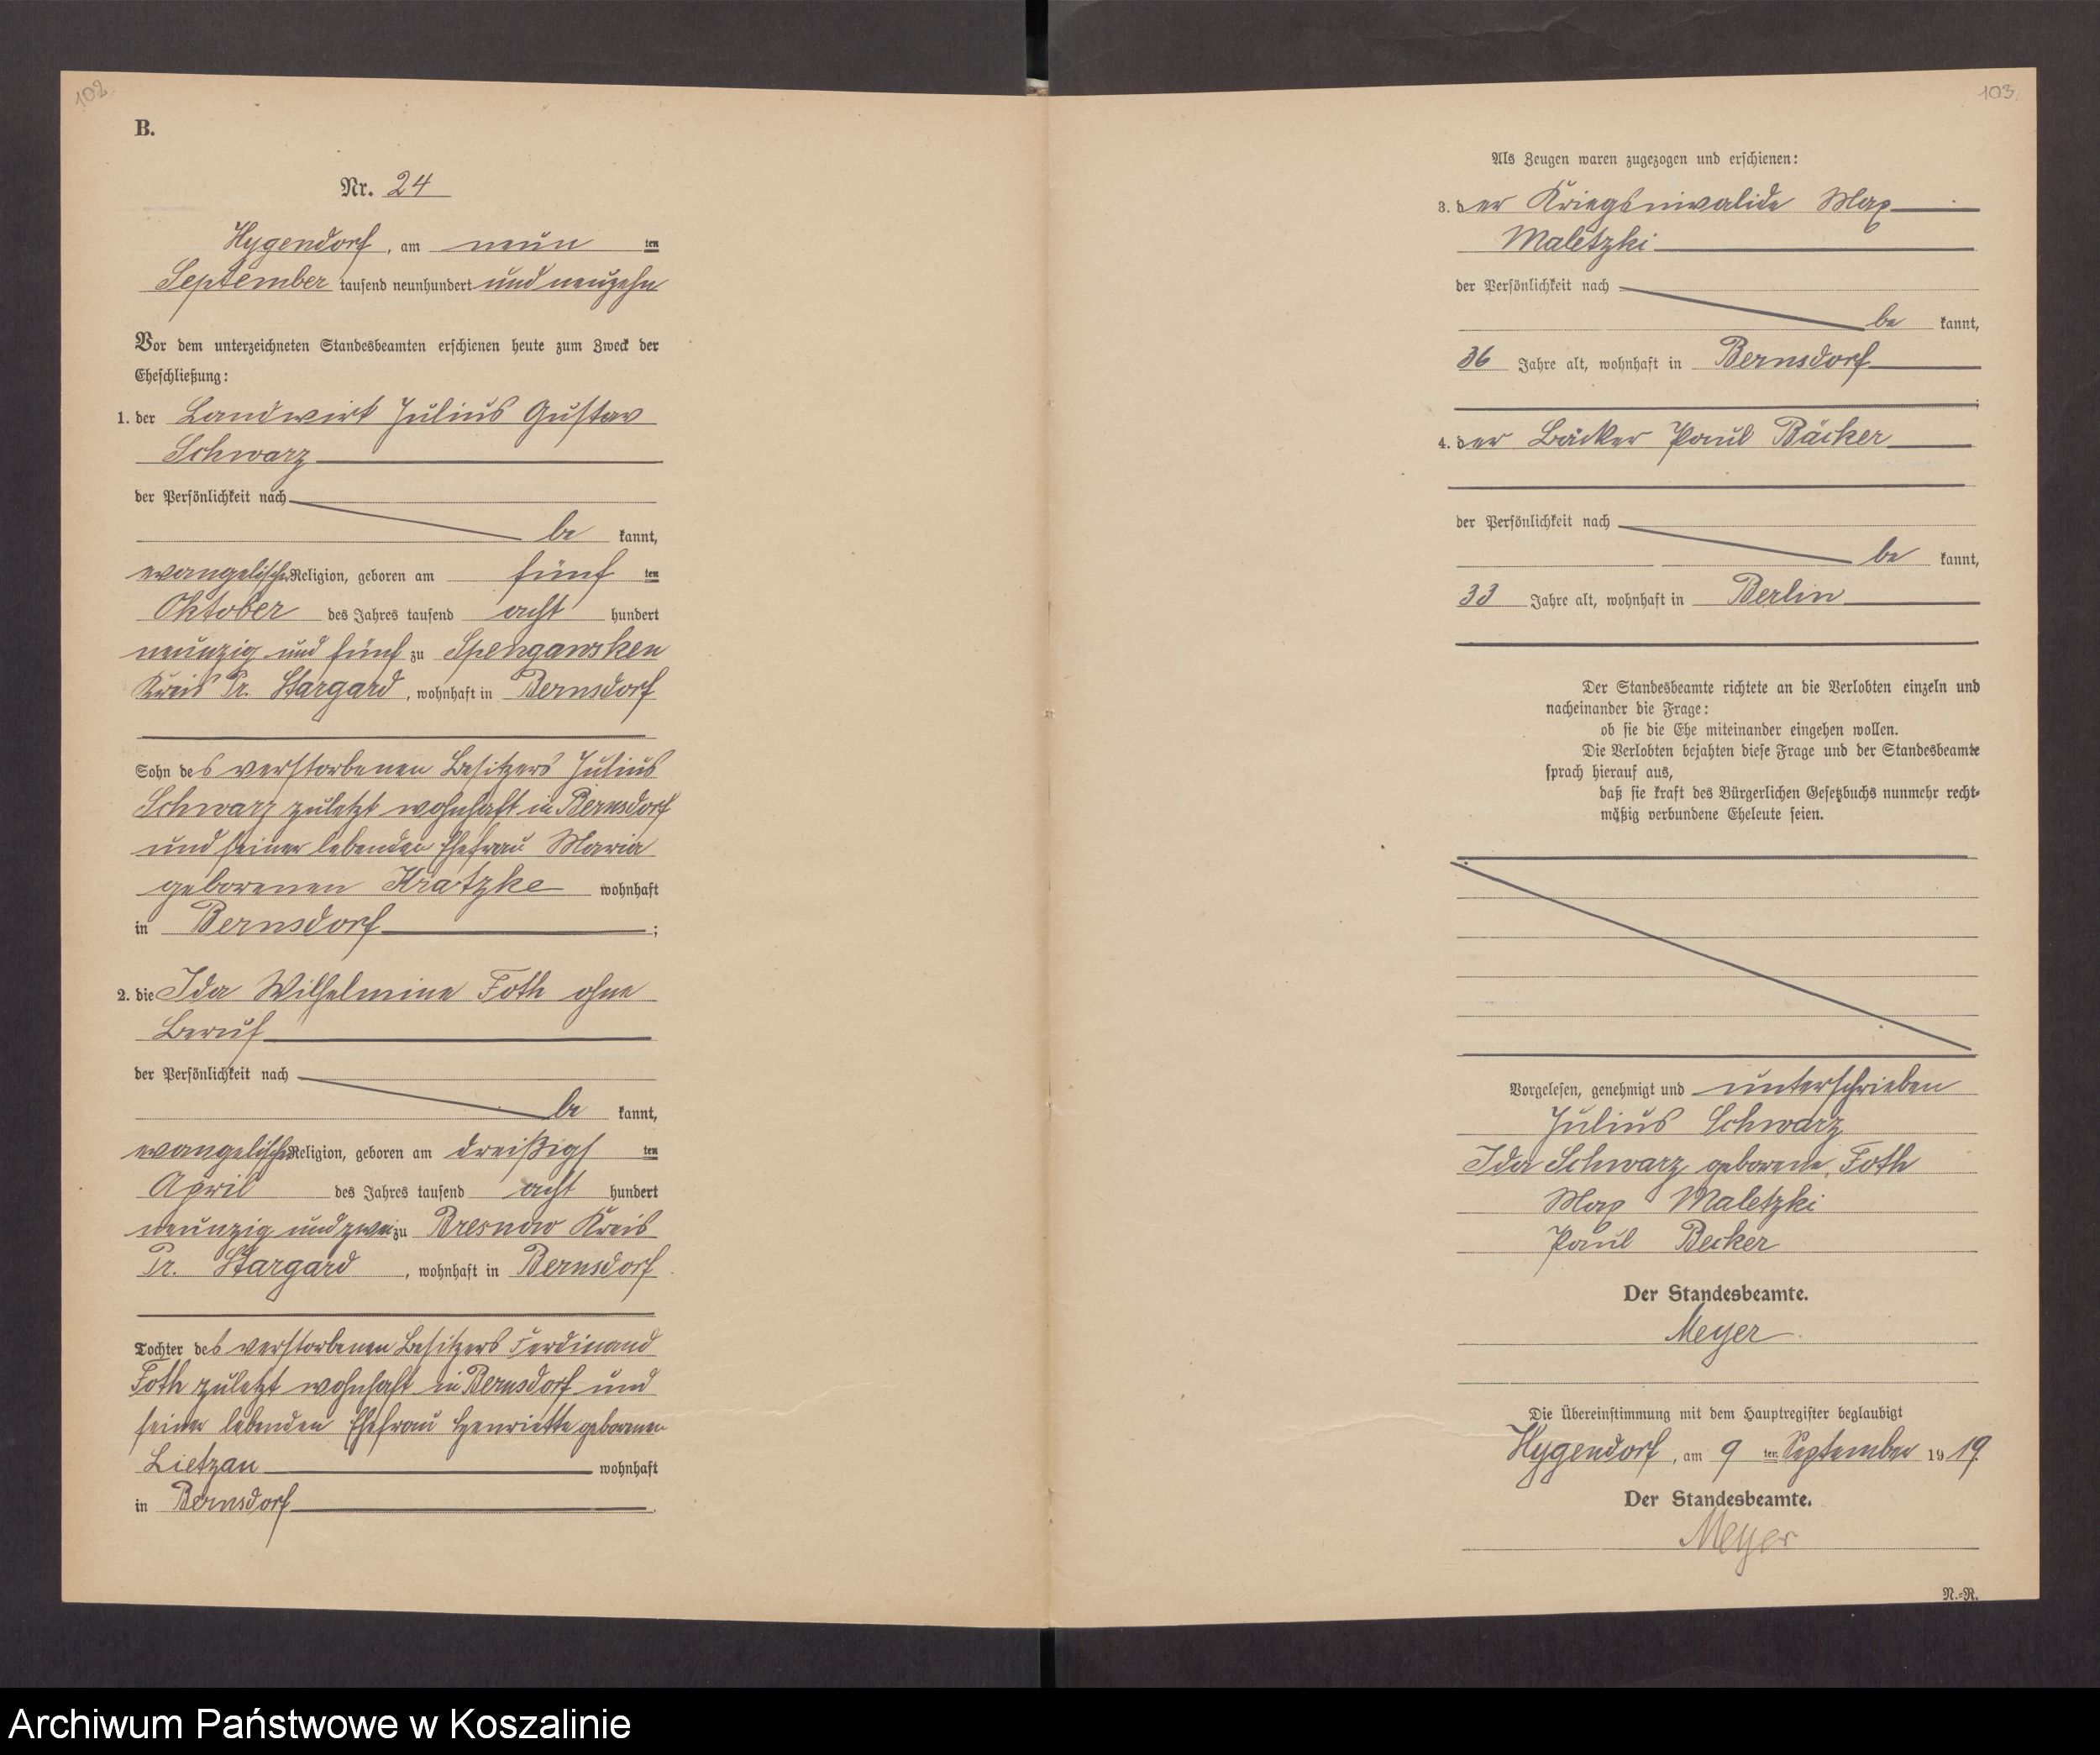 102.
B.
Nr. 24
Hygendorf, am neun ten
September tausend neunhundert und neuzehn
Vor dem unterzeichneten Standesbeamten erschienen heute zum Zweck der
Eheschließung:
1. der Landwirt Julius Gustav
Schwarz
der Persönlichkeit nach
be kannt,
evangelischer Religion, geboren am fünf ten
Oktober des Jahres tausend acht hundert
neunzig und fünf zu Spengawsken
Kreis Pr. Stargard, wohnhaft in Bernsdorf
Sohn des verstorbenen Besitzers Julius
Schwarz zuletzt wohnhaft in Bernsdorf
und seiner lebenden Ehefrau Maria
geborenen Kratzke wohnhaft
in Bernsdorf ;
2. die Ida Wilhelmine Foth ohne
Beruf
der Persönlichkeit nach
be kannt,
evangelischer Religion, geboren am dreißigs ten
April des Jahres tausend acht hundert
neunzig und zwei zu Bresnow Kreis
Pr. Stargard, wohnhaft in Bernsdorf
Tochter des verstorbenen Besitzers Ferdinand
Foth zuletzt wohnhaft in Bernsdorf und
seiner lebenden Ehefrau Henriette geborenen
Lietzau wohnhaft
in Bernsdorf .
103.
Als Zeugen waren zugezogen und erschienen:
3. der Kriegsinvalide Max
Maletzki
der Persönlichkeit nach
be kannt,
36 Jahre alt, wohnhaft in Bernsdorf
;
4. der Bäcker Paul Bäcker
der Persönlichkeit nach
be kannt,
33 Jahre alt, wohnhaft in Berlin
Der Standesbeamte richtete an die Verlobten einzeln und
nacheinander die Frage:
ob sie die Ehe miteinander eingehen wollen.
Die Verlobten bejahten diese Frage und der Standesbeamte
sprach hierauf aus,
daß sie kraft des Bürgerlichen Gesetzbuchs nunmehr recht-
mäßig verbundene Eheleute seien.
Vorgelesen, genehmigt und unterschrieben
Julius Schwarz
Ida Schwarz geborene Foth
Max Maletzki
Paul Becker
Der Standesbeamte.
Meyer
Die Übereinstimmung mit dem Hauptregister beglaubigt
Hygendorf, am 9 ten September 19 19.
Der Standesbeamte.
Meyer
N.-R.
Archiwum Państwowe w Koszalinie